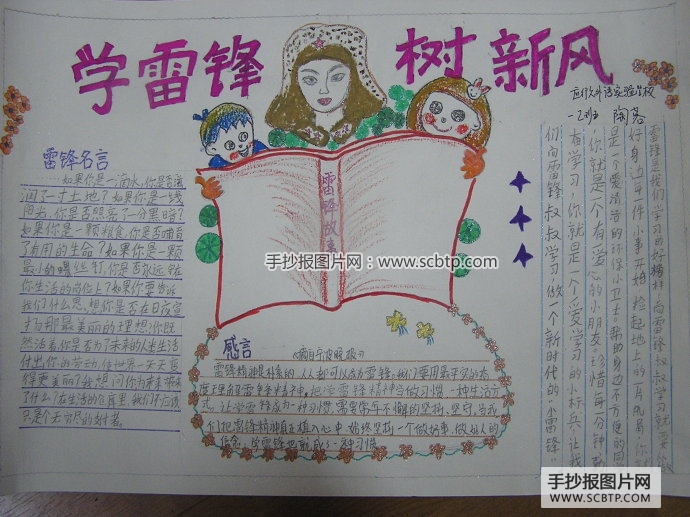 学雷锋 树新风
应城外语实验学校
一2班 陶茗
雷锋名言
如果你是一滴水,你是否滋
润了一寸土地?如果你是一线
阳光,你是否照亮了一分黑暗?
如果你是一颗粮食,你是否哺育
了有用的生命?如果你是一颗
最小的螺丝钉,你是否永远
你生活的岗位上?如果你要告诉
我们什么思想,你是否在日夜宣
扬那最美丽的理想?你既
然活着,你是否为了未来的人类生活
付出你的劳动,使世界一天天变
得更美丽?我想问你,为未来带来
了什么?在生活的仓库里,我们不应该
只是个无穷尽的支付者。
雷锋故事
手抄报图片网:www.scbtp.com
感言
雷锋精神是朴素的,人人都可以成为雷锋。我们要用最平实的态
度理解雷锋精神,把学雷锋精神当做习惯,一种生活方
式,让学雷锋成为一种习惯,需要常年不懈的坚持,坚守。当我
们把雷锋精神真正植入心中,始终坚持一个做好事,做好人的
信念,学雷锋也就成了一种习惯
雷锋是我们学习的好榜样,向雷锋叔叔学习就要从
好身边每一件小事开始,捡起地上的一片纸屑,你就
是一个爱清洁的环保小卫士;帮助身边不方便的同
你就是一个有爱心的小朋友;珍惜每一分钟
学习,你就是一个爱学习的小标兵,让我
们向雷锋叔叔学习,做一个新时代的小雷锋。
手抄报图片网
WWW.SCBTP.COM